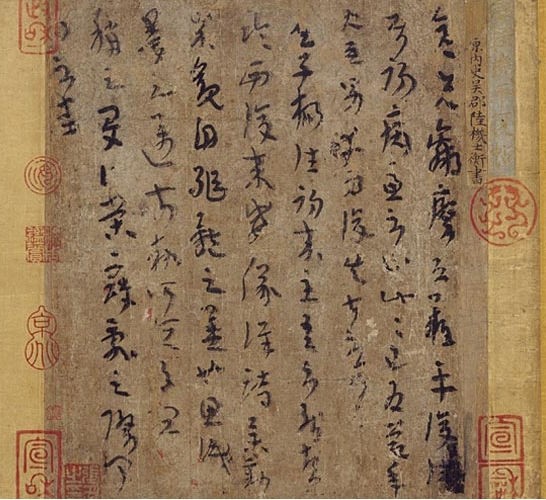 晉內史吳郡陸機士衡書
彥先羸瘵恐難平復往屬
初病慮不止此此已為慶承
使唯男幸為復失前憂耳
吳子楊往初來主吾不能盡
臨西復來威儀詳跱舉動
成觀自軀體之美也思識
量之邁前執所恒有宜
稱之夏伯榮寇亂之際聞
問不悉
宣和